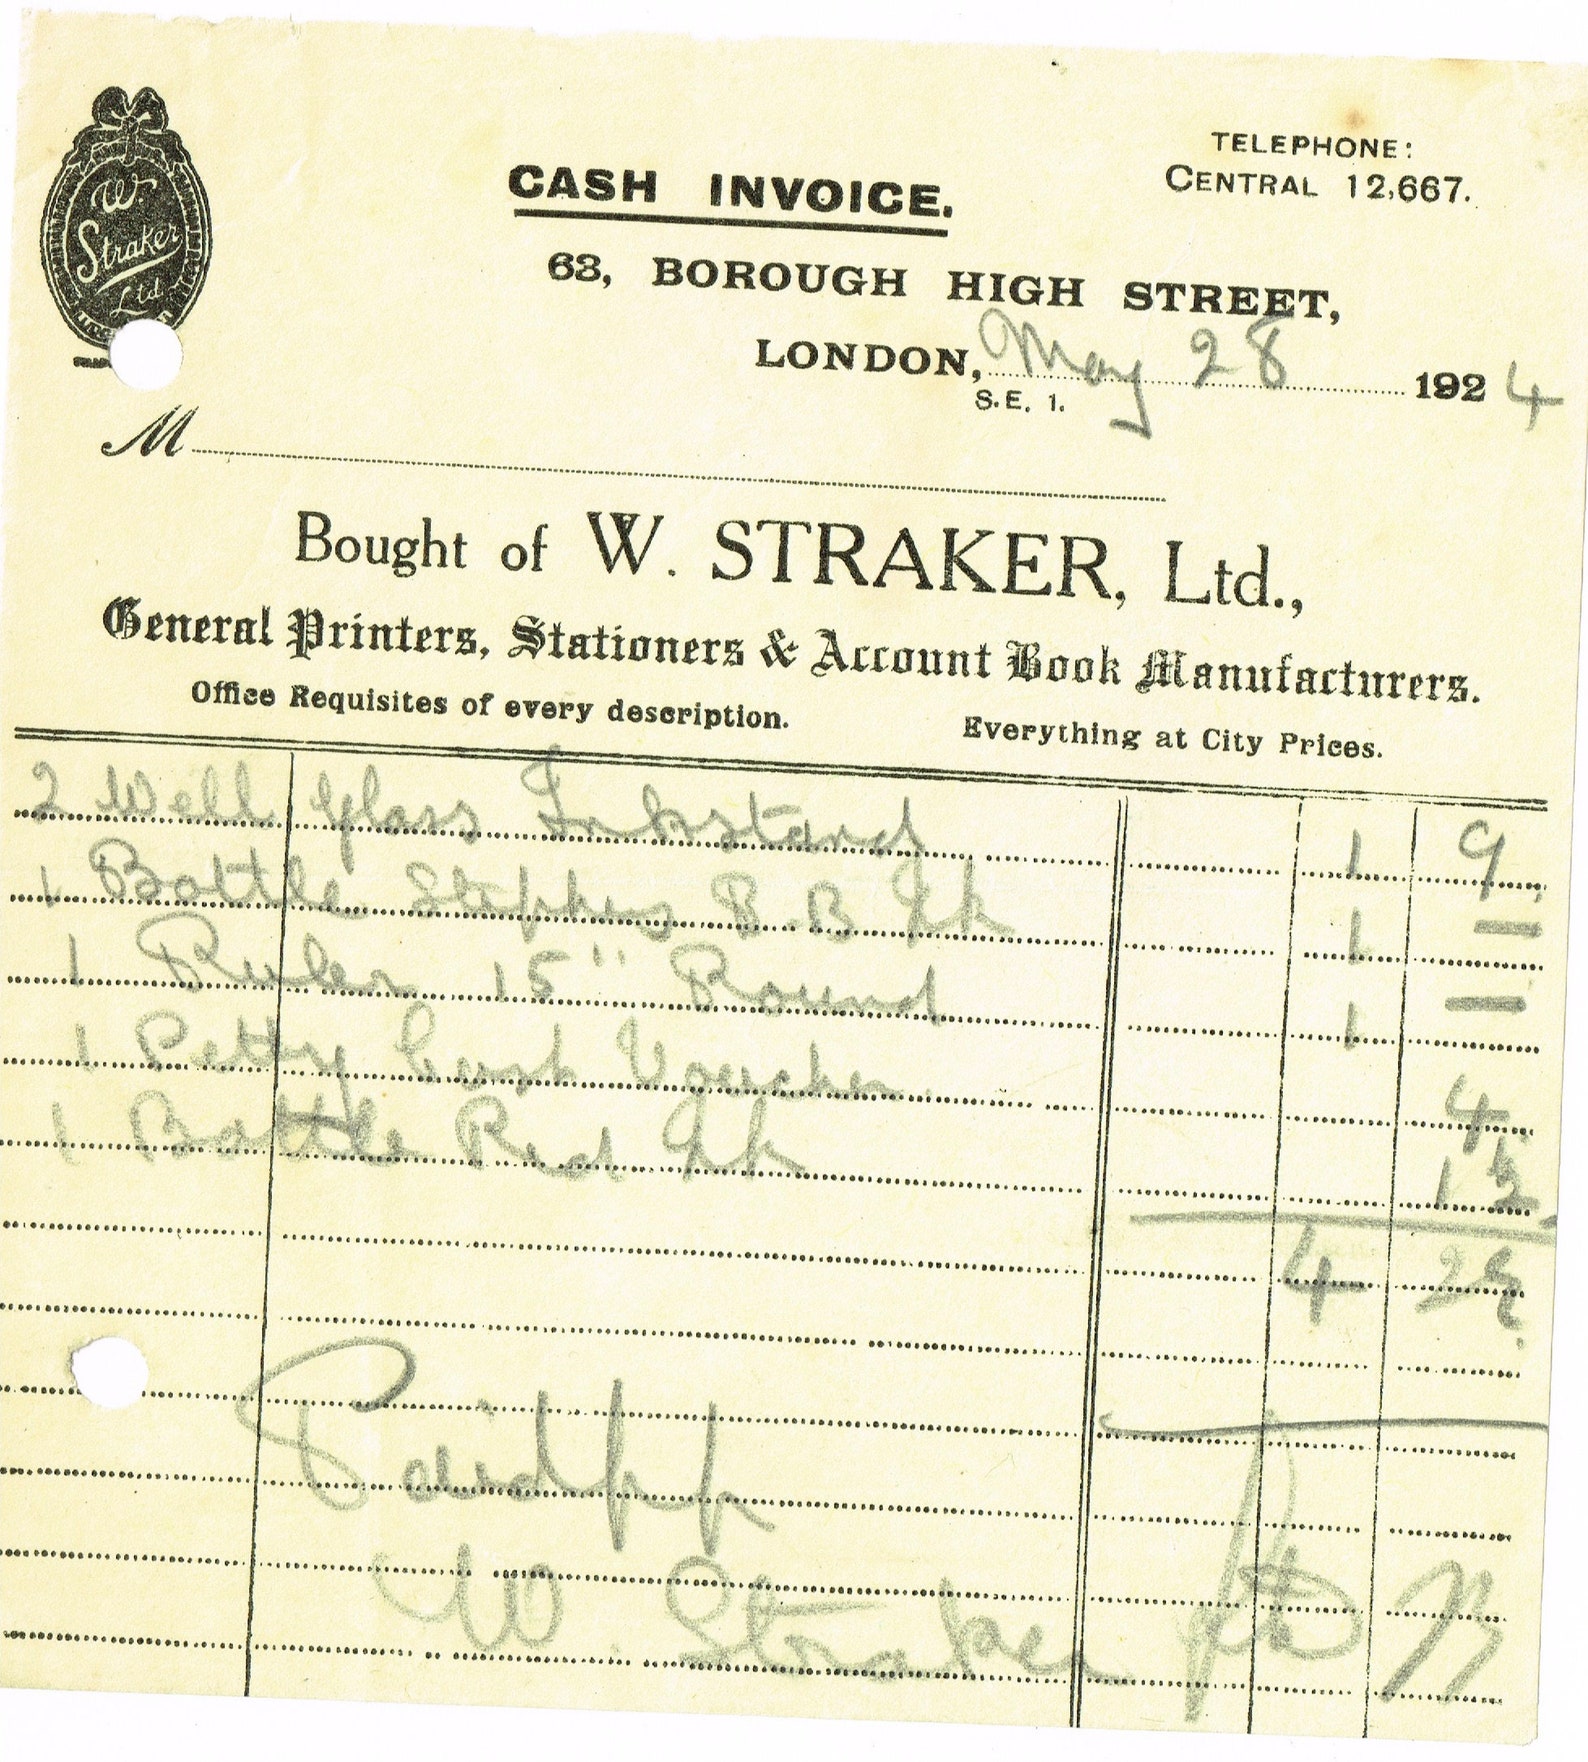 W.
Straker
Ltd
CASH INVOICE.
TELEPHONE:
CENTRAL 12,667.
63, BOROUGH HIGH STREET,
LONDON, May 28 1924
S.E. 1.
M
Bought of W. STRAKER, Ltd.,
General Printers, Stationers & Account Book Manufacturers.
Office Requisites of every description. Everything at City Prices.
2 Well Glass Inkstand 1 9
1 Bottle Stephens B.B Ink 1 —
1 Ruler 15" Round 1 —
1 Petty Cash Voucher 4
1 Bottle Red Ink 1½
4 2½
Paid pp
W. Straker